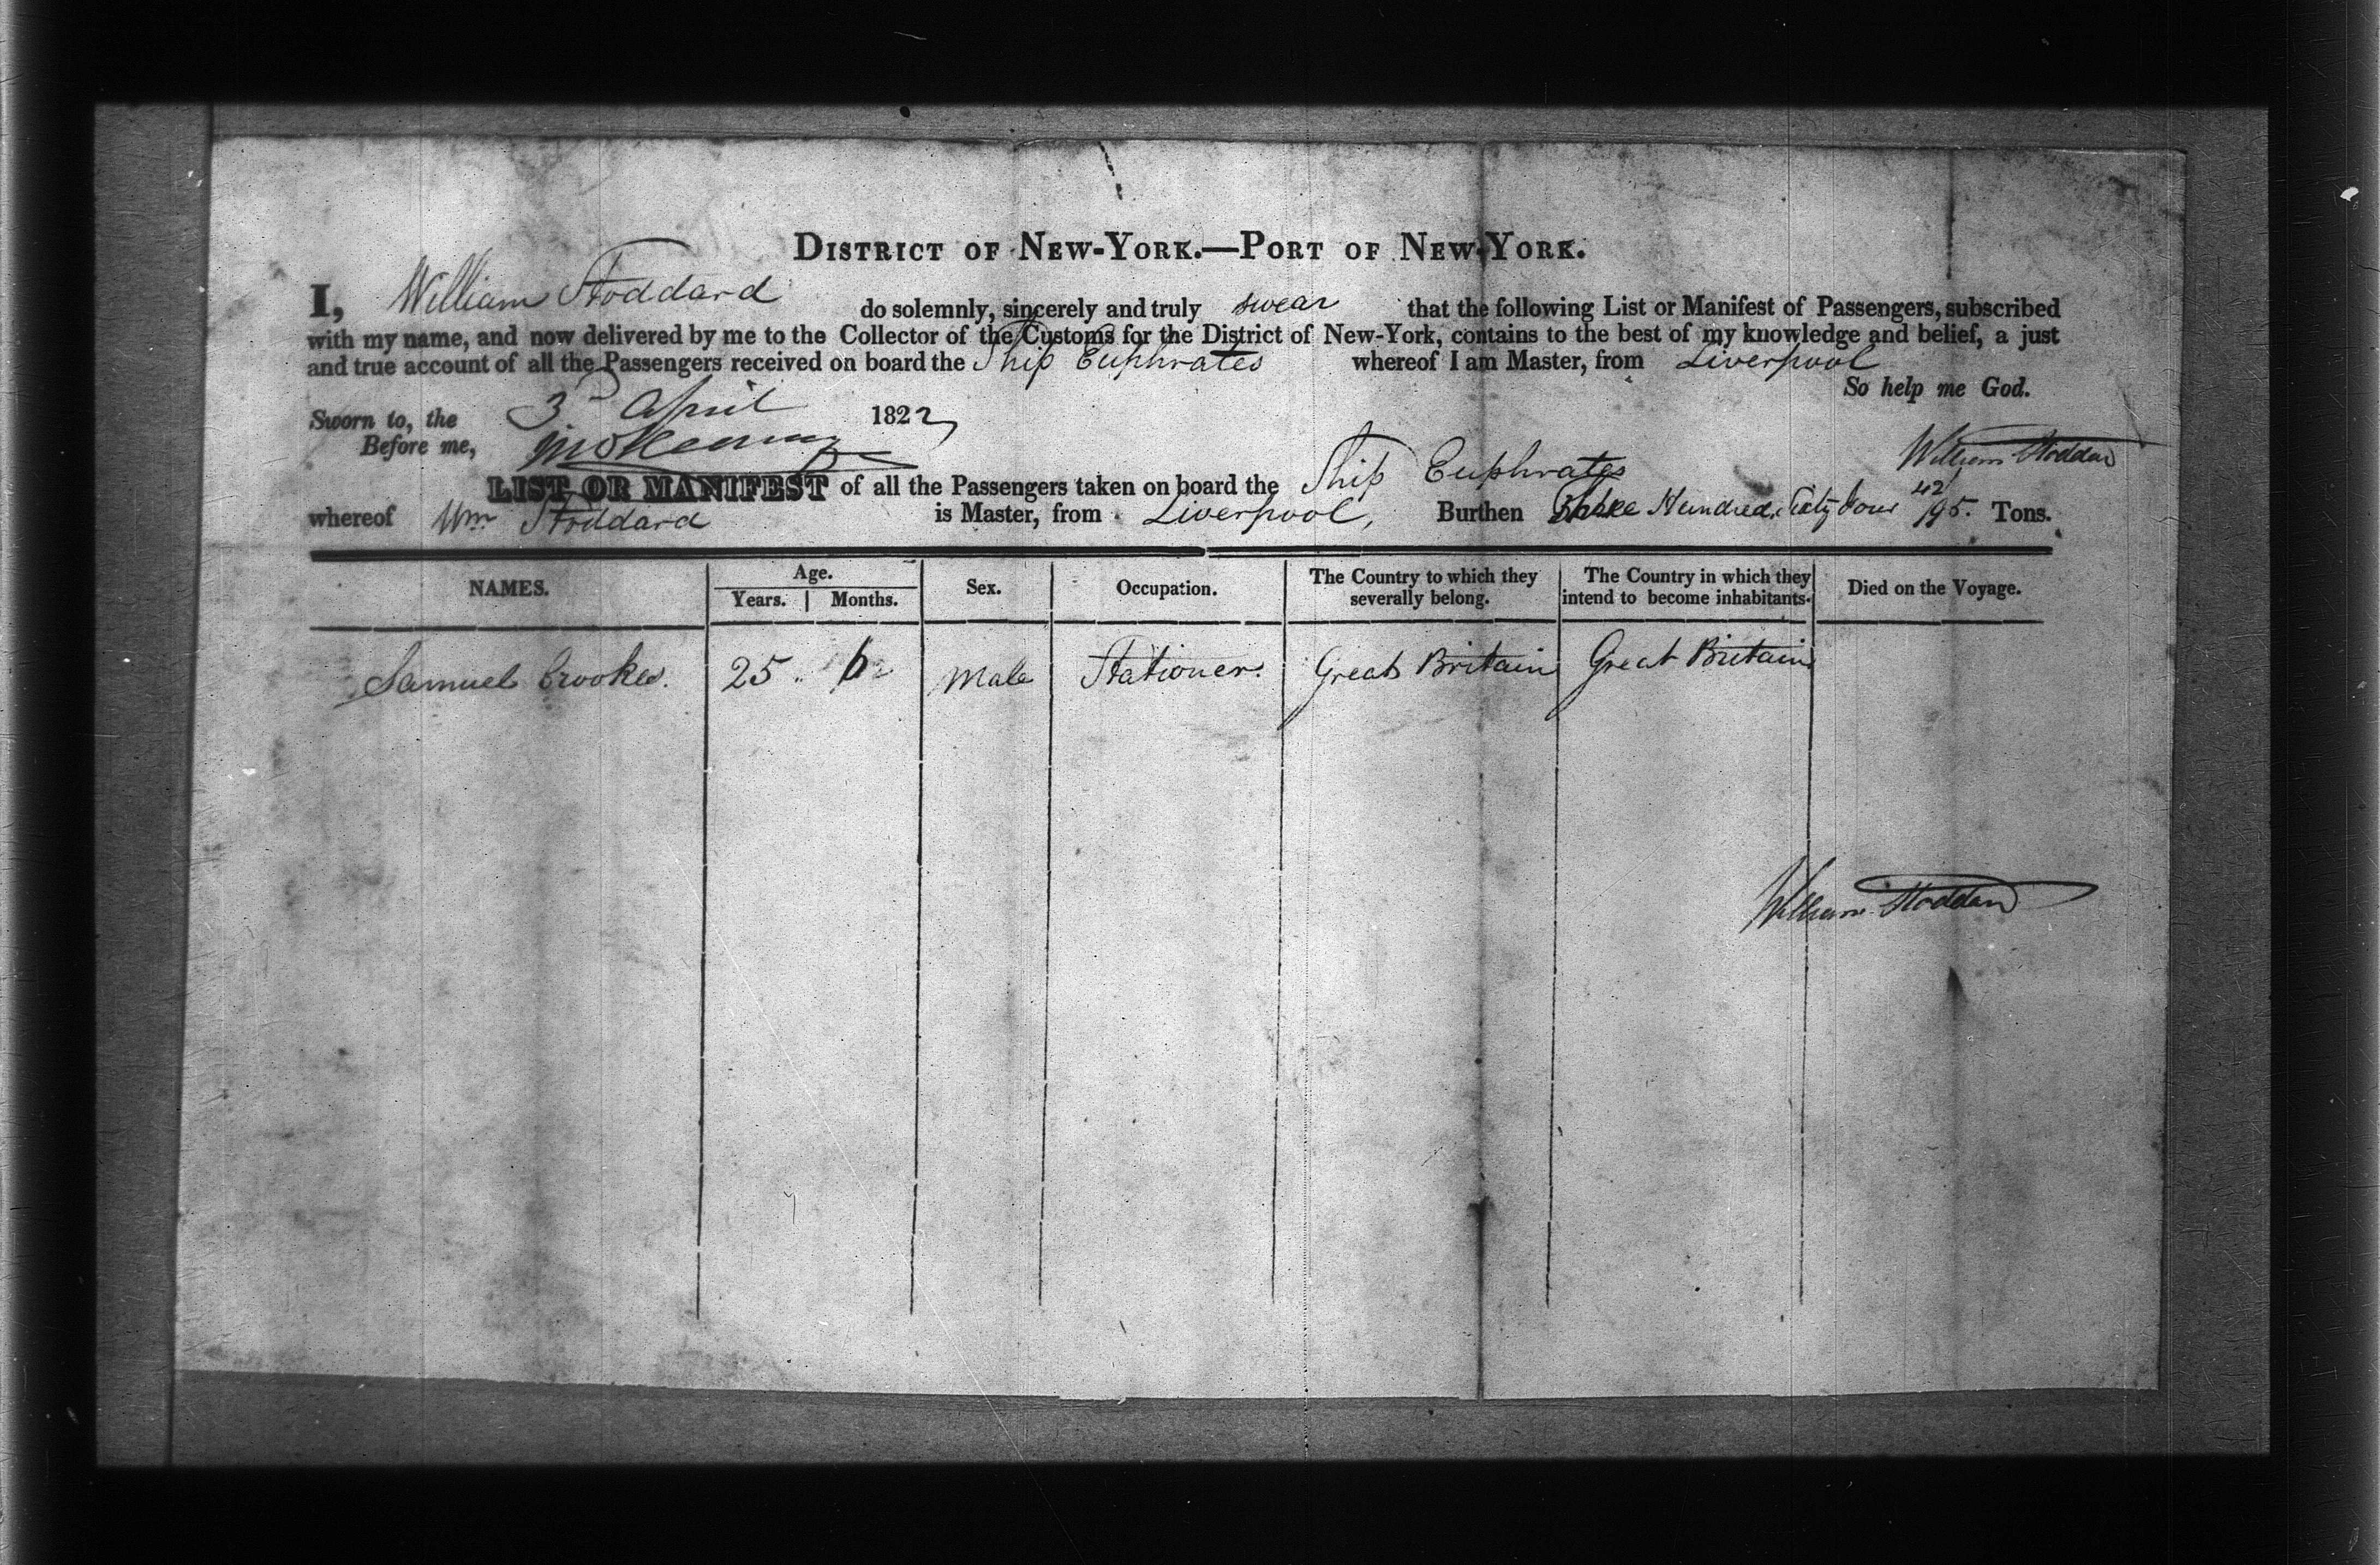 DISTRICT OF NEW-YORK.—PORT OF NEW-YORK.
I, William Stoddard do solemnly, sincerely and truly swear that the following List or Manifest of Passengers, subscribed
with my name, and now delivered by me to the Collector of the Customs for the District of New-York, contains to the best of my knowledge and belief, a just
and true account of all the Passengers received on board the Ship Euphrates whereof I am Master, from Liverpool
So help me God.
Sworn to, the 3d April 1822
Before me,
William Stoddard
LIST OR MANIFEST of all the Passengers taken on board the Ship Euphrates
whereof Wm Stoddard is Master, from Liverpool, Burthen Three Hundred Sixty four 42/95 Tons.
NAMES. Age. Years. Months. Sex. Occupation. The Country to which they severally belong. The Country in which they intend to become inhabitants. Died on the Voyage.
Samuel Crookes. 25 6 Male Stationer. Great Britain Great Britain
William Stoddard